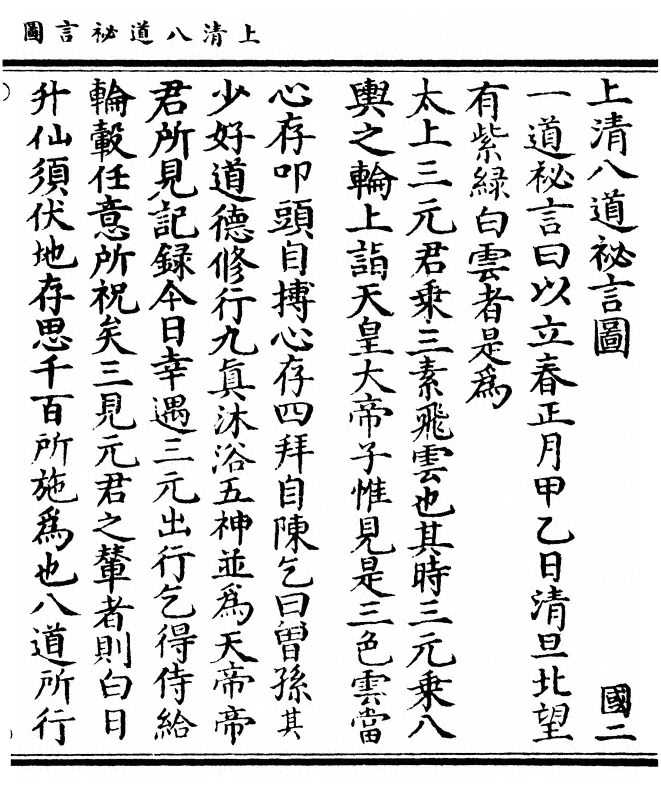 上清八道祕言圖
上清八道祕言圖 國二
一道祕言曰以立春正月甲乙日清旦北望
有紫緑白雲者是為
太上三元君乘三素飛雲也其時三元乘八
輿之輪上詣天皇大帝子惟見是三色雲當
心存叩頭自搏心存四拜自陳乞曰曽孫其
少好道德修行九真沐浴五神並為天帝帝
君所見記録今日幸遇三元出行乞得侍給
輪轂任意所祝矣三見元君之輦者則白日
升仙須伏地存思千百所施為也八道所行